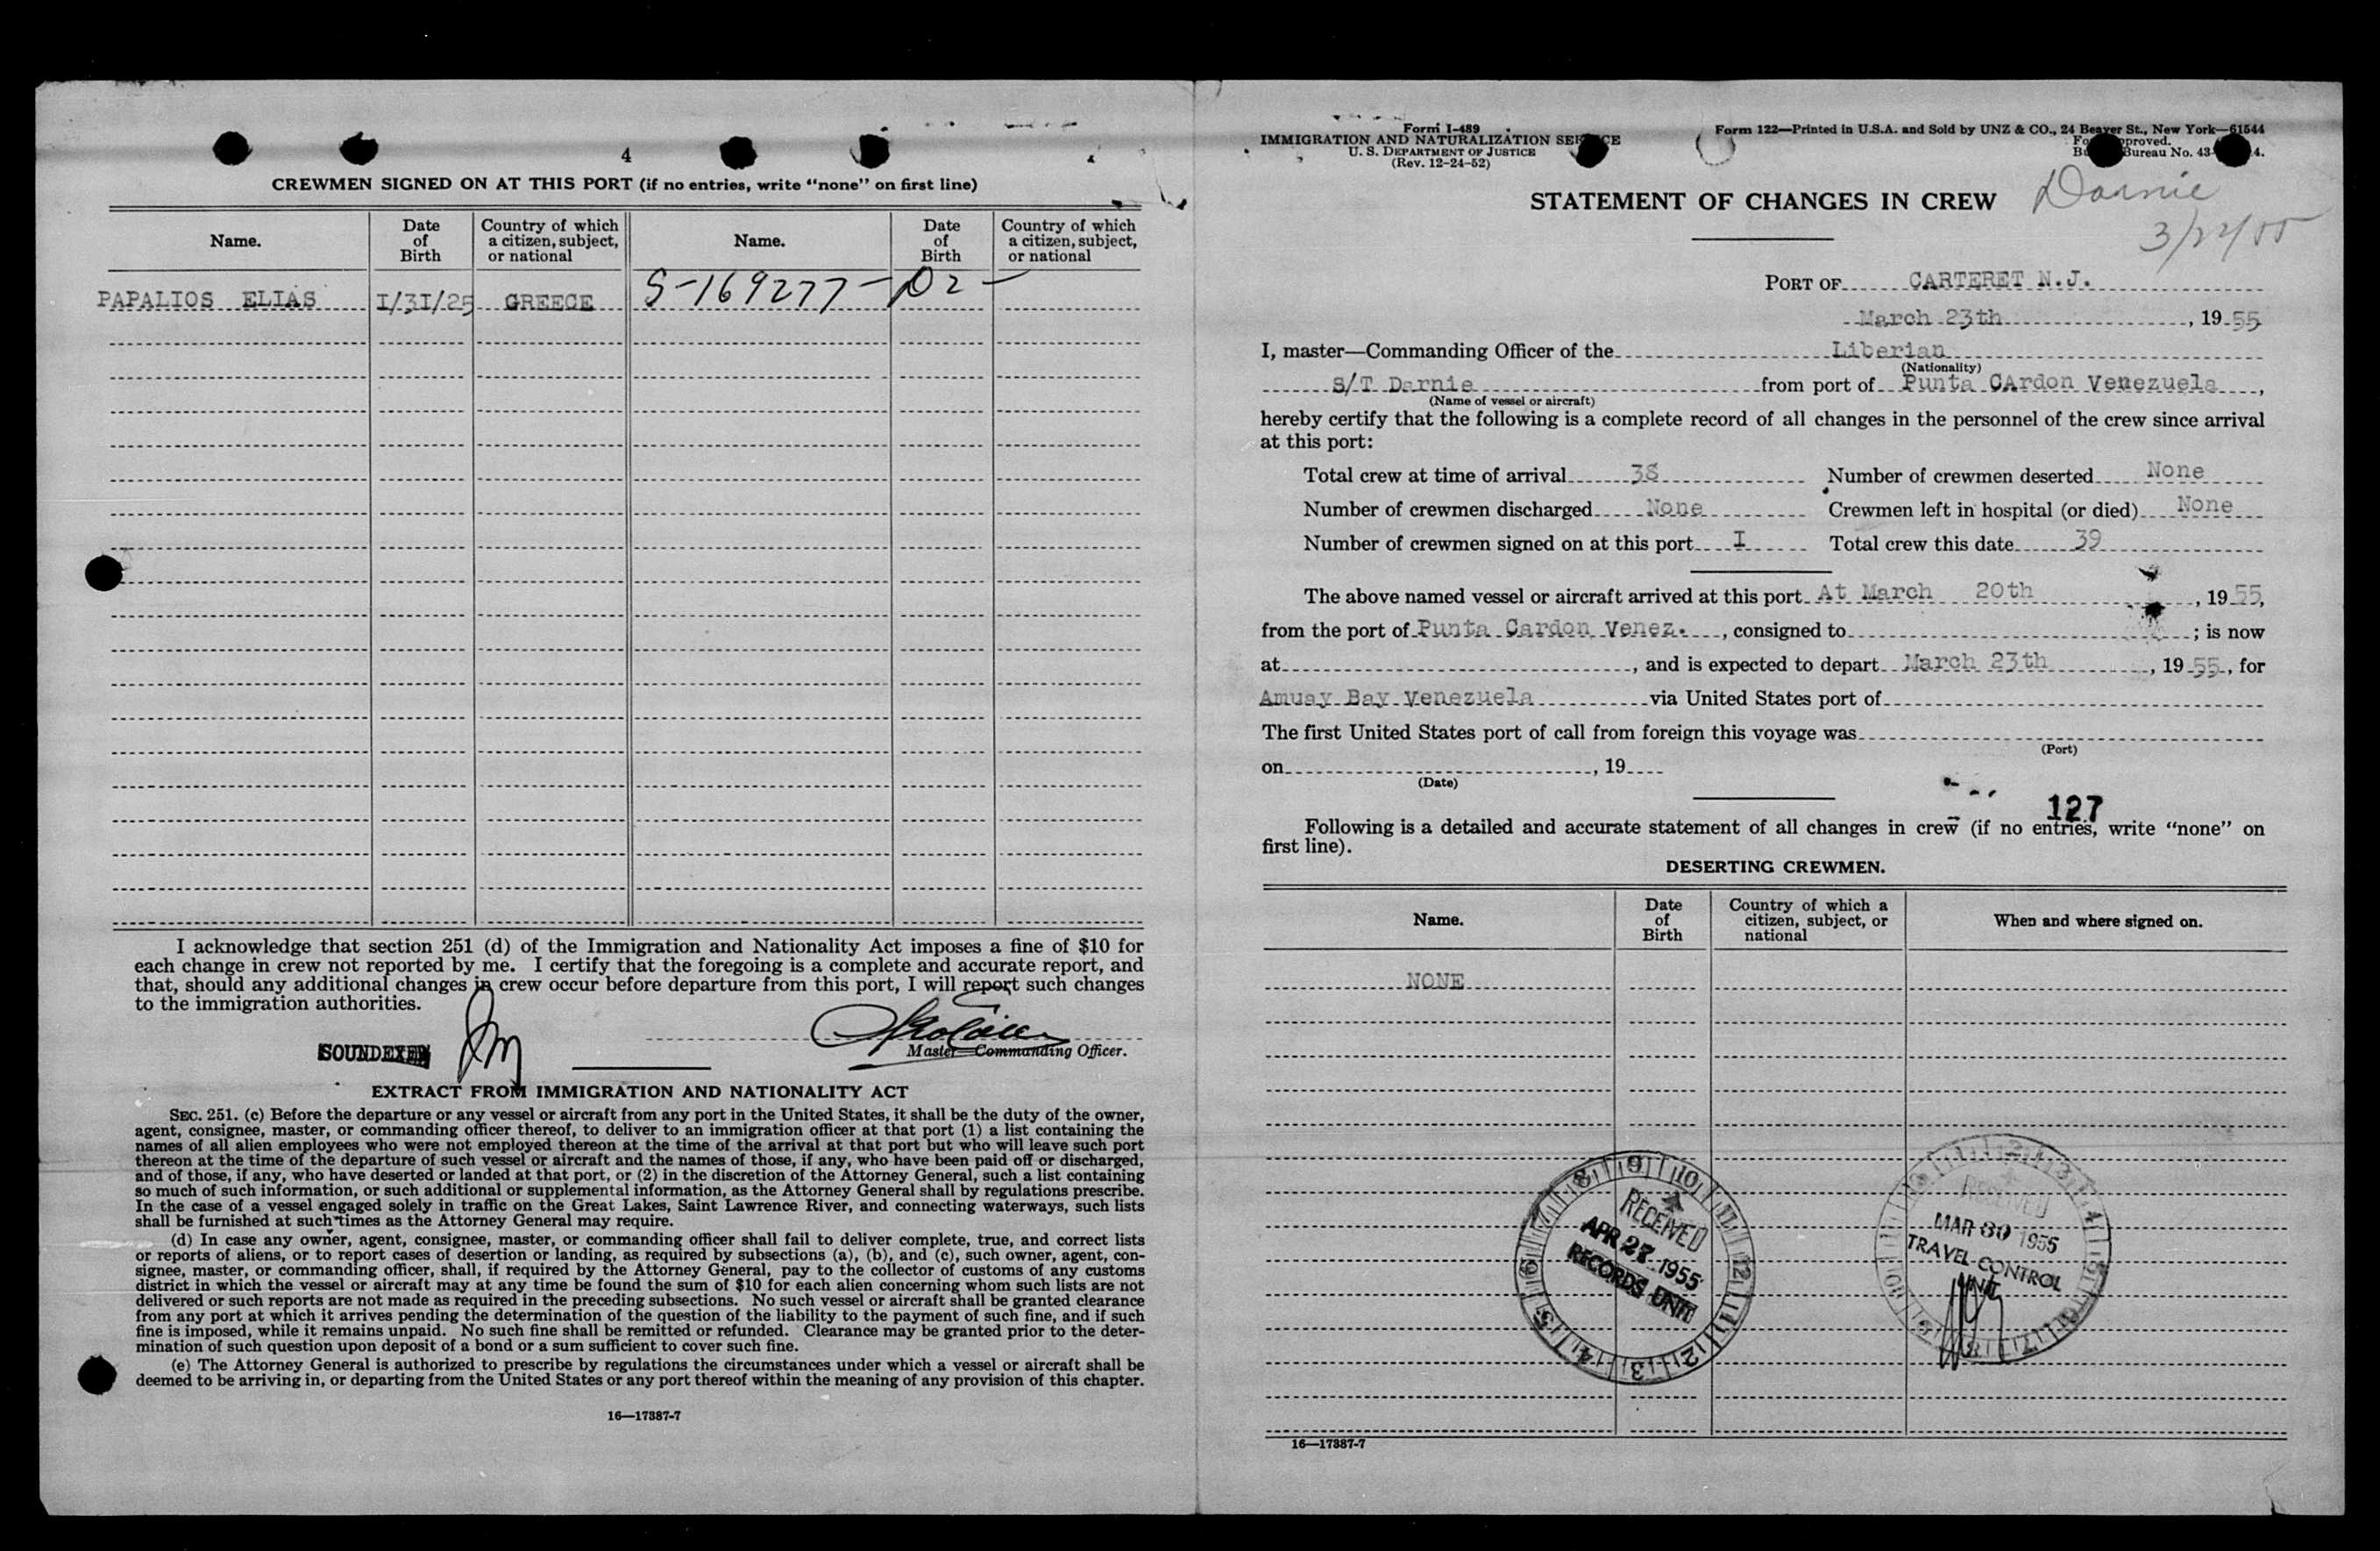 4
CREWMEN SIGNED ON AT THIS PORT (if no entries, write “none” on first line)
Name. Date of Birth Country of which a citizen, subject, or national Name. Date of Birth Country of which a citizen, subject, or national
PAPALIOS ELIAS I/3I/25 GREECE S-169277-D2-
I acknowledge that section 251 (d) of the Immigration and Nationality Act imposes a fine of $10 for
each change in crew not reported by me. I certify that the foregoing is a complete and accurate report, and
that, should any additional changes in crew occur before departure from this port, I will report such changes
to the immigration authorities.
SOUNDEXED
Master—Commanding Officer.
EXTRACT FROM IMMIGRATION AND NATIONALITY ACT
SEC. 251. (c) Before the departure or any vessel or aircraft from any port in the United States, it shall be the duty of the owner,
agent, consignee, master, or commanding officer thereof, to deliver to an immigration officer at that port (1) a list containing the
names of all alien employees who were not employed thereon at the time of the arrival at that port but who will leave such port
thereon at the time of the departure of such vessel or aircraft and the names of those, if any, who have been paid off or discharged,
and of those, if any, who have deserted or landed at that port, or (2) in the discretion of the Attorney General, such a list containing
so much of such information, or such additional or supplemental information, as the Attorney General shall by regulations prescribe.
In the case of a vessel engaged solely in traffic on the Great Lakes, Saint Lawrence River, and connecting waterways, such lists
shall be furnished at such times as the Attorney General may require.
(d) In case any owner, agent, consignee, master, or commanding officer shall fail to deliver complete, true, and correct lists
or reports of aliens, or to report cases of desertion or landing, as required by subsections (a), (b), and (c), such owner, agent, con-
signee, master, or commanding officer, shall, if required by the Attorney General, pay to the collector of customs of any customs
district in which the vessel or aircraft may at any time be found the sum of $10 for each alien concerning whom such lists are not
delivered or such reports are not made as required in the preceding subsections. No such vessel or aircraft shall be granted clearance
from any port at which it arrives pending the determination of the question of the liability to the payment of such fine, and if such
fine is imposed, while it remains unpaid. No such fine shall be remitted or refunded. Clearance may be granted prior to the deter-
mination of such question upon deposit of a bond or a sum sufficient to cover such fine.
(e) The Attorney General is authorized to prescribe by regulations the circumstances under which a vessel or aircraft shall be
deemed to be arriving in, or departing from the United States or any port thereof within the meaning of any provision of this chapter.
16—17387-7
Form I-489
IMMIGRATION AND NATURALIZATION SERVICE
U. S. DEPARTMENT OF JUSTICE
(Rev. 12-24-52)
Form 122—Printed in U.S.A. and Sold by UNZ & CO., 24 Beaver St., New York—61544
Bureau No. 43-
STATEMENT OF CHANGES IN CREW
Darnie
PORT OF CARTERET N.J.
March 23th, 1955
I, master—Commanding Officer of the Liberian
(Nationality)
S/T Darnie from port of Punta CArdon Venezuela,
(Name of vessel or aircraft)
hereby certify that the following is a complete record of all changes in the personnel of the crew since arrival
at this port:
Total crew at time of arrival 38 Number of crewmen deserted None
Number of crewmen discharged None Crewmen left in hospital (or died) None
Number of crewmen signed on at this port I Total crew this date 39
The above named vessel or aircraft arrived at this port At March 20th, 1955,
from the port of Punta Cardon Venez., consigned to ; is now
at , and is expected to depart March 23th, 1955, for
Amuay Bay Venezuela via United States port of
The first United States port of call from foreign this voyage was
(Port)
on , 19
(Date)
127
Following is a detailed and accurate statement of all changes in crew (if no entries, write “none” on
first line).
DESERTING CREWMEN.
Name. Date of Birth Country of which a citizen, subject, or national When and where signed on.
NONE
9 10 11 12 1 2 3 4 5 6 7 8
RECEIVED
APR 27 1955
RECORDS UNIT
RECEIVED
MAR 30 1955
TRAVEL CONTROL
UNIT
16—17387-7